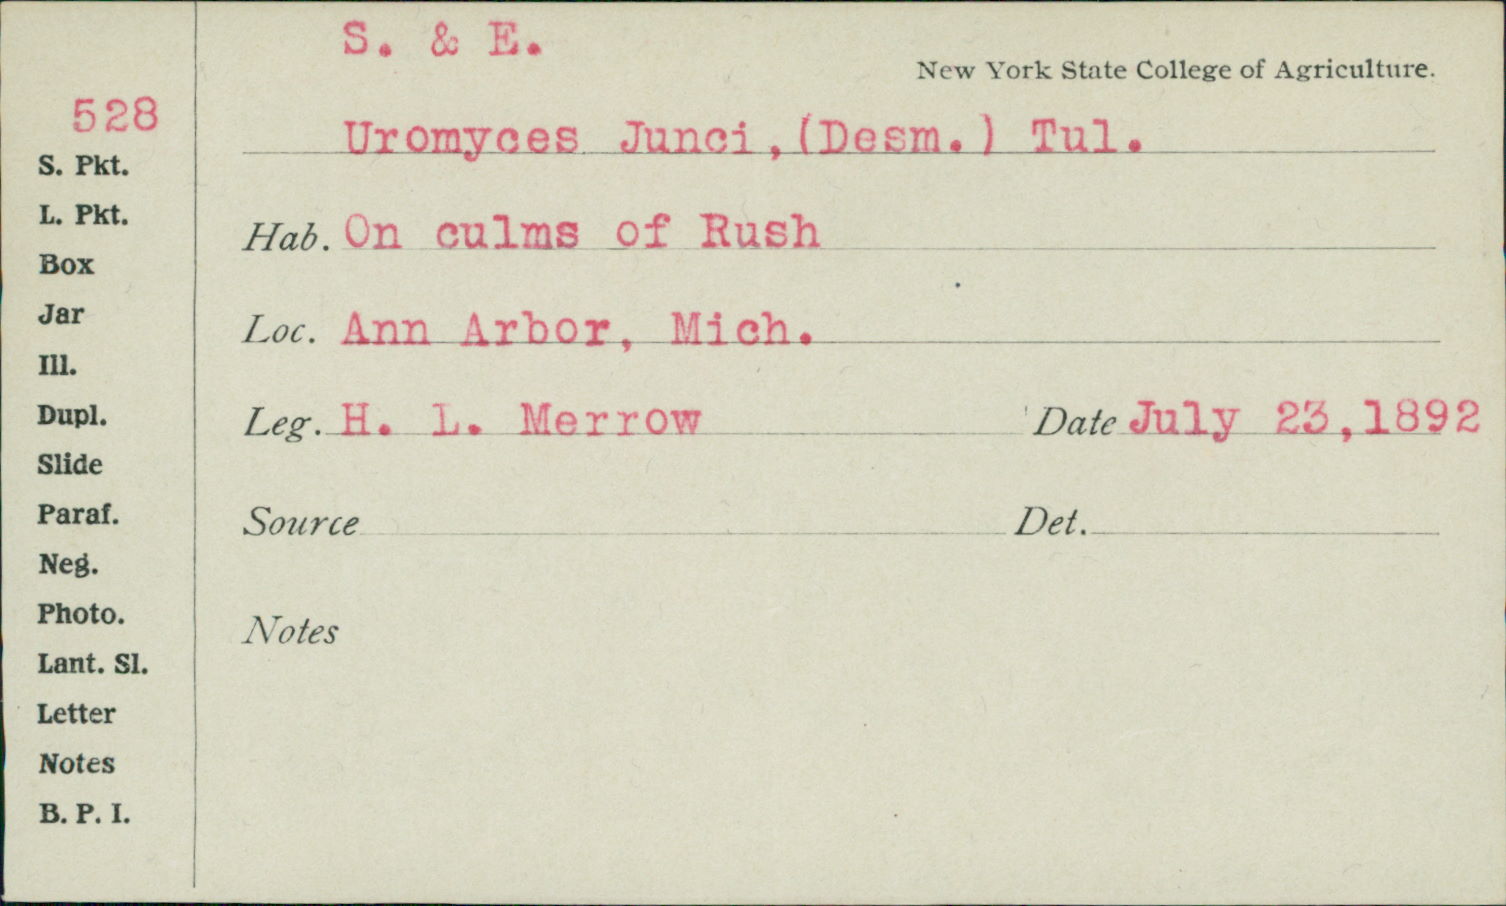 S. & E.
New York State College of Agriculture.
528
Uromyces Junci,(Desm.) Tul.
S. Pkt.
L. Pkt.
Box
Jar
Ill.
Dupl.
Slide
Paraf.
Neg.
Photo.
Lant. Sl.
Letter
Notes
B. P. I.
Hab. On culms of Rush
Loc. Ann Arbor, Mich.
Leg. H. L. Merrow Date July 23,1892
Source Det.
Notes